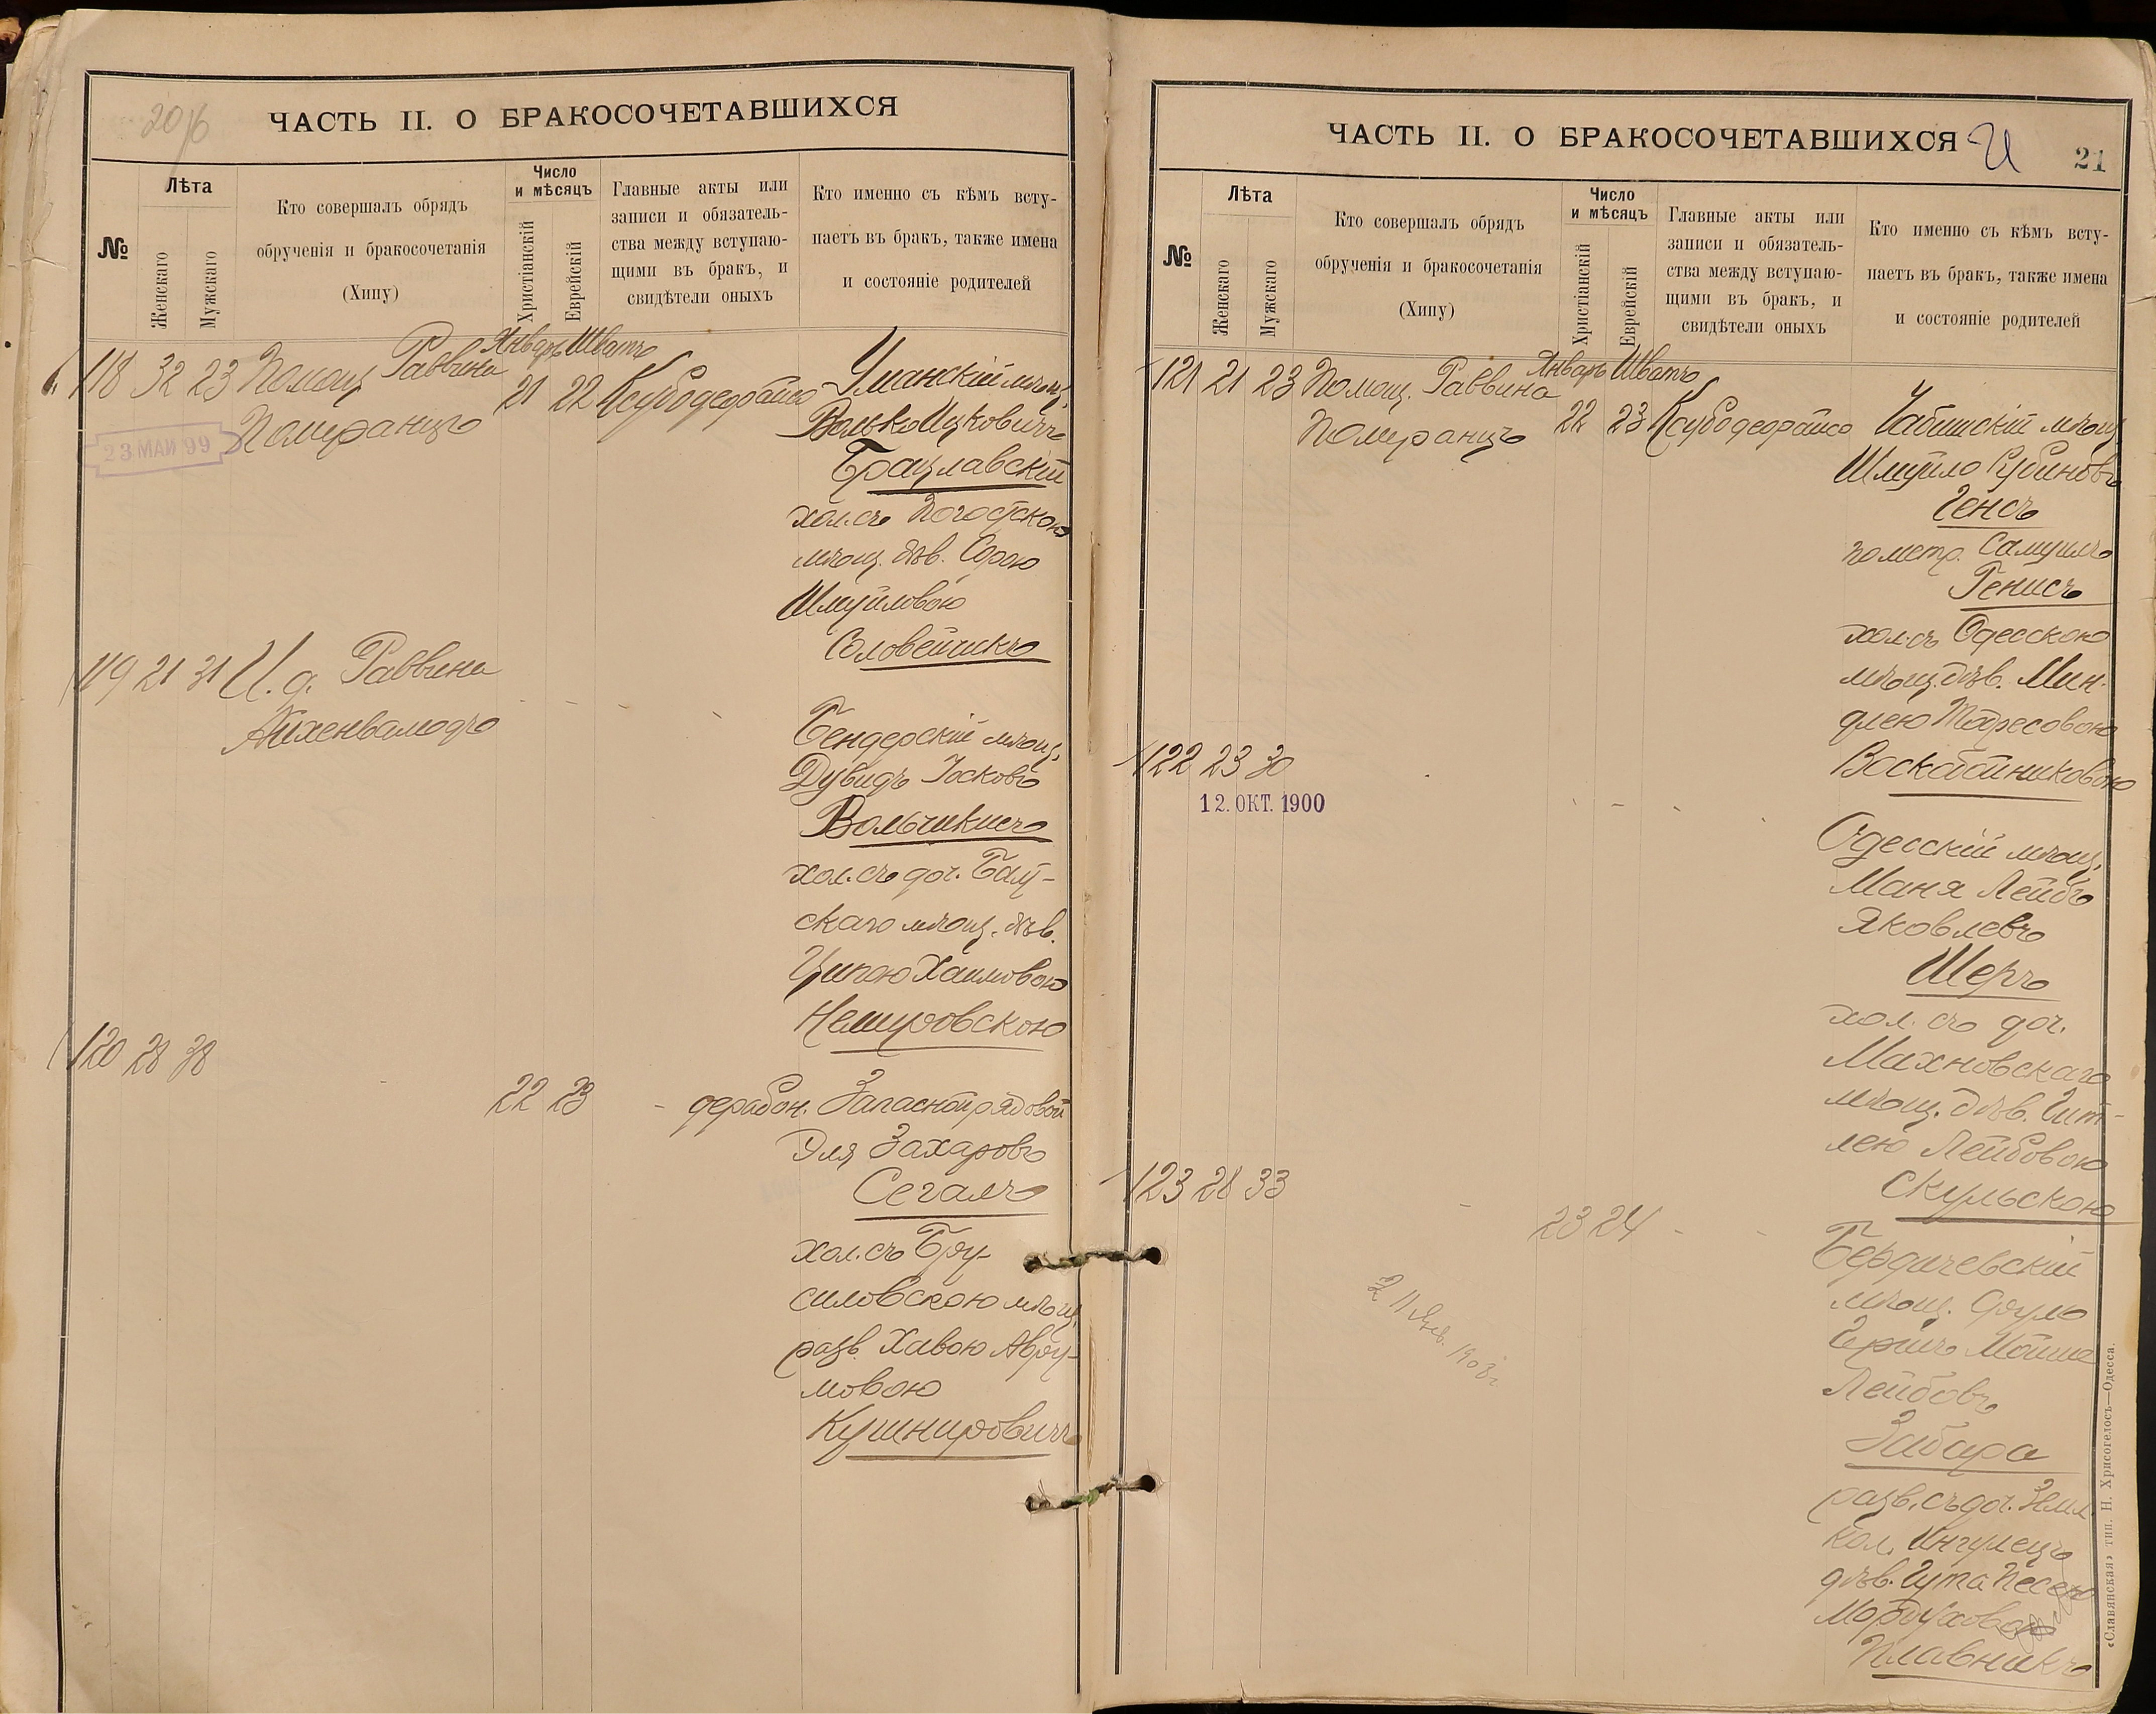 20 16
ЧАСТЬ II. О БРАКОСОЧЕТАВШИХСЯ
№
Лѣта
Женскаго
Мужскаго
Кто совершалъ обрядъ
обрученія и бракосочетанія
(Хипу)
Число
и мѣсяцъ
Христіанскій
Еврейскій
Главные акты или
записи и обязатель-
ства между вступаю-
щими въ бракъ, и
свидѣтели оныхъ
Кто именно съ кѣмъ всту-
паетъ въ бракъ, также имена
и состояніе родителей
118 32 23 Помощ Раввина
Померанцъ
Январь Шватъ
21 22 Ксубодеорайсо
23 МАЙ 99
Уманскій мѣщ.
Волько Ицковичъ
Брацлавскій
хол. съ Погостскою
мѣщ. дѣв. Сорою
Шмуйловою
Соловейчикъ
119 21 31 И. д. Раввина
Айхенвальдъ
Бендерскій мѣщ.
Дувидъ Іосковъ
Вольчикисъ
хол. съ доч. Балт-
скаго мѣщ. дѣв.
Ципою Хаимовою
Немировскою
120 28 38
22 23 - дерабон.
Запасной рядовой
Эля Захаровъ
Сегалъ
хол. съ Бру-
силовскою мѣщ.
разв. Хавою Авру-
мовою
Кушнировичъ
ЧАСТЬ II. О БРАКОСОЧЕТАВШИХСЯ
21
№
Лѣта
Женскаго
Мужскаго
Кто совершалъ обрядъ
обрученія и бракосочетанія
(Хипу)
Число
и мѣсяцъ
Христіанскій
Еврейскій
Главные акты или
записи и обязатель-
ства между вступаю-
щими въ бракъ, и
свидѣтели оныхъ
Кто именно съ кѣмъ всту-
паетъ въ бракъ, также имена
и состояніе родителей
121 21 23 Помощ. Раввина
Померанцъ
Январь Шватъ
22 23 Ксубодеорайсо
мѣщ.
Шмуйло Рубиновъ
Генсъ
по метр. Самуилъ
Генисъ
хол. съ Одесскою
мѣщ. дѣв. Мин-
длею
Воскобойниковою
122 23 30
12. ОКТ. 1900
Одесскій мѣщ.
Маня Лейбъ
Яковлевъ
Шеръ
хол. съ доч.
Махновскаго
мѣщ. дѣв. Гит-
лею Лейбовою
Скульскою
123 28 33
23 24
2 11 Янв. 1903 г.
Бердичевскій
мѣщ. Сруль
Гершъ Мойше
Лейбовъ
Забара
разв. съ доч.Земл.
кол. Ингулецъ
дѣв. Гута Песею
Мордуховою
Плавникъ
«Славянская» тип. Н. Хрисогелосъ—Одесса.